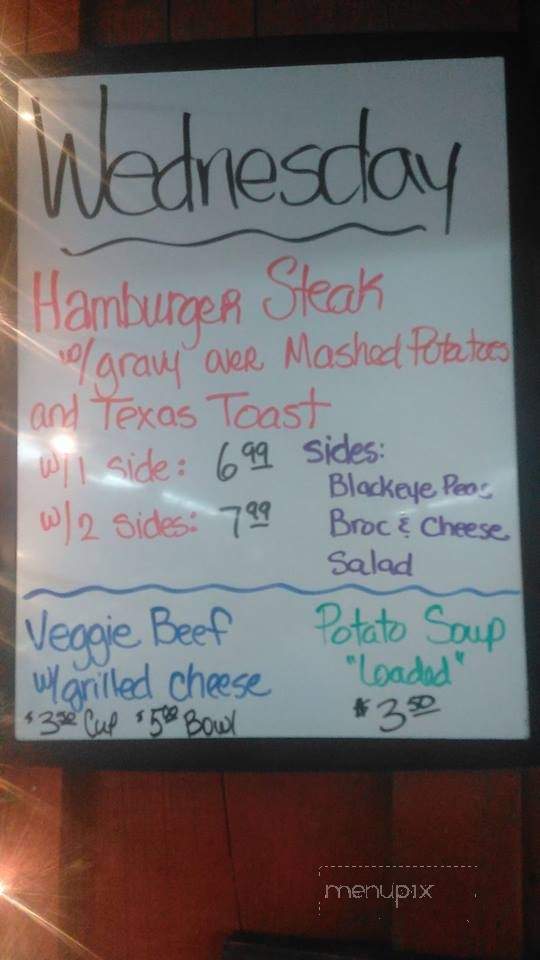 Wednesday
Hamburger Steak
w/gravy over Mashed Potatoes
and Texas Toast
w/1 side: 6.99
w/2 sides: 7.99
Sides:
Blackeye Peas
Broc & Cheese
Salad
Veggie Beef
w/grilled cheese
$3.50 Cup $5.00 Bowl
Potato Soup
"Loaded"
$3.50
menupix